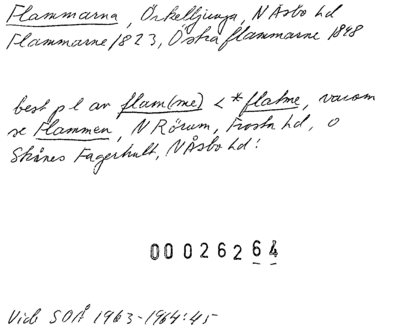 Flammarna, Örkelljunga, N Åsbo hd
Flammarne 1823, Östra flammarne 1848
best pl av flam(me) < *flatme, varom
se Flammen, N Rörum, Frosta hd, o
Skånes Fagerhult, N Åsbo hd!
00026264
Vide SOÅ 1963-1964:45